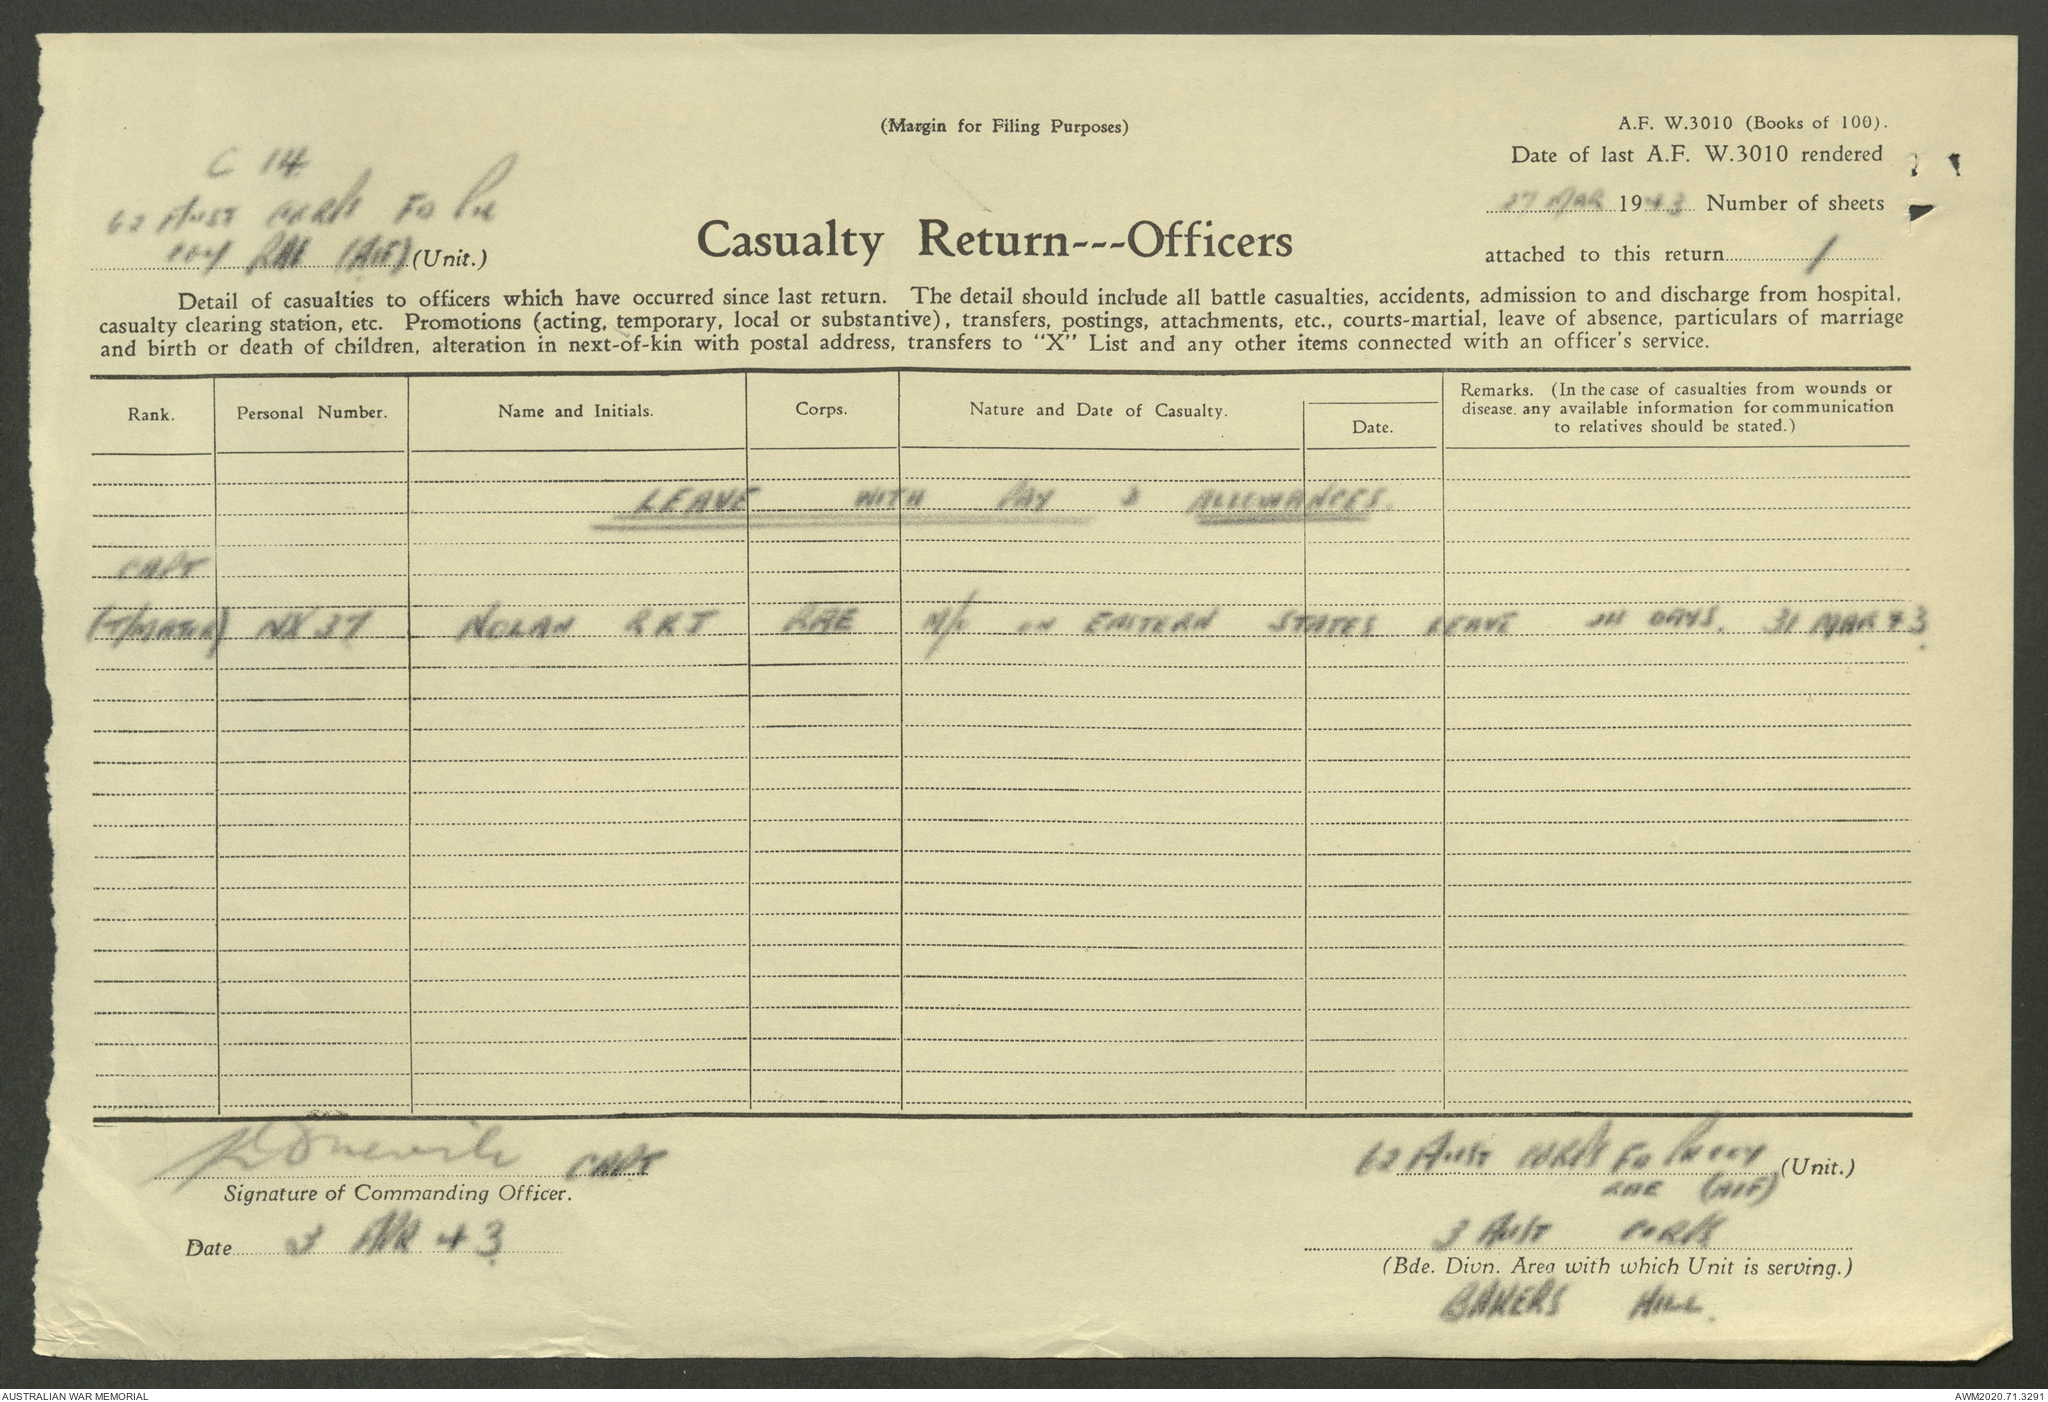 (Margin for Filing Purposes)
A.F. W.3010 (Books of 100).
Date of last A.F. W.3010 rendered
27 MAR 1943 Number of sheets
attached to this return 1
C 14
62 Aust Corps FD Pk
Coy RAE (AIF) (Unit.)
Casualty Return---Officers
Detail of casualties to officers which have occurred since last return. The detail should include all battle casualties, accidents, admission to and discharge from hospital,
casualty clearing station, etc. Promotions (acting, temporary, local or substantive), transfers, postings, attachments, etc., courts-martial, leave of absence, particulars of marriage
and birth or death of children, alteration in next-of-kin with postal address, transfers to "X" List and any other items connected with an officer's service.
Rank. Personal Number. Name and Initials. Corps. Nature and Date of Casualty. Date. Remarks. (In the case of casualties from wounds or
disease, any available information for communication
to relatives should be stated.)
LEAVE WITH PAY & ALLOWANCES.
CAPT
(T/MAJOR) NX 37 NOLAN RKJ RAE M/O ON EASTERN STATES LEAVE DAYS. 31 MAR 43.
CAPT
Signature of Commanding Officer.
Date 3 APR 43
62 Aust Corps FD Pk Coy (Unit.)
RAE (AIF)
3 Aust Corps
(Bde. Divn. Area with which Unit is serving.)
BAKERS HILL.
AUSTRALIAN WAR MEMORIAL
AWM2020.71.3291